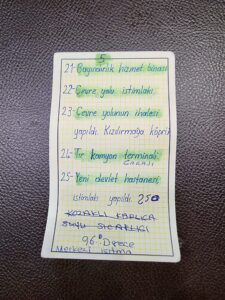 5
21- Bayındırlık hizmet binası
22- Çevre yolu istimlakı
23- Çevre yolunun ihalesi
yapıldı. Kızılırmağa köprü
24- Tır kamyon terminali
GARAJI
25- Yeni devlet hastanesi
istimlakı yapıldı. 250
KOZAKLI KAPLICA
SUYU SICAKLIĞI
96° Derece
Merkezi ısıtma